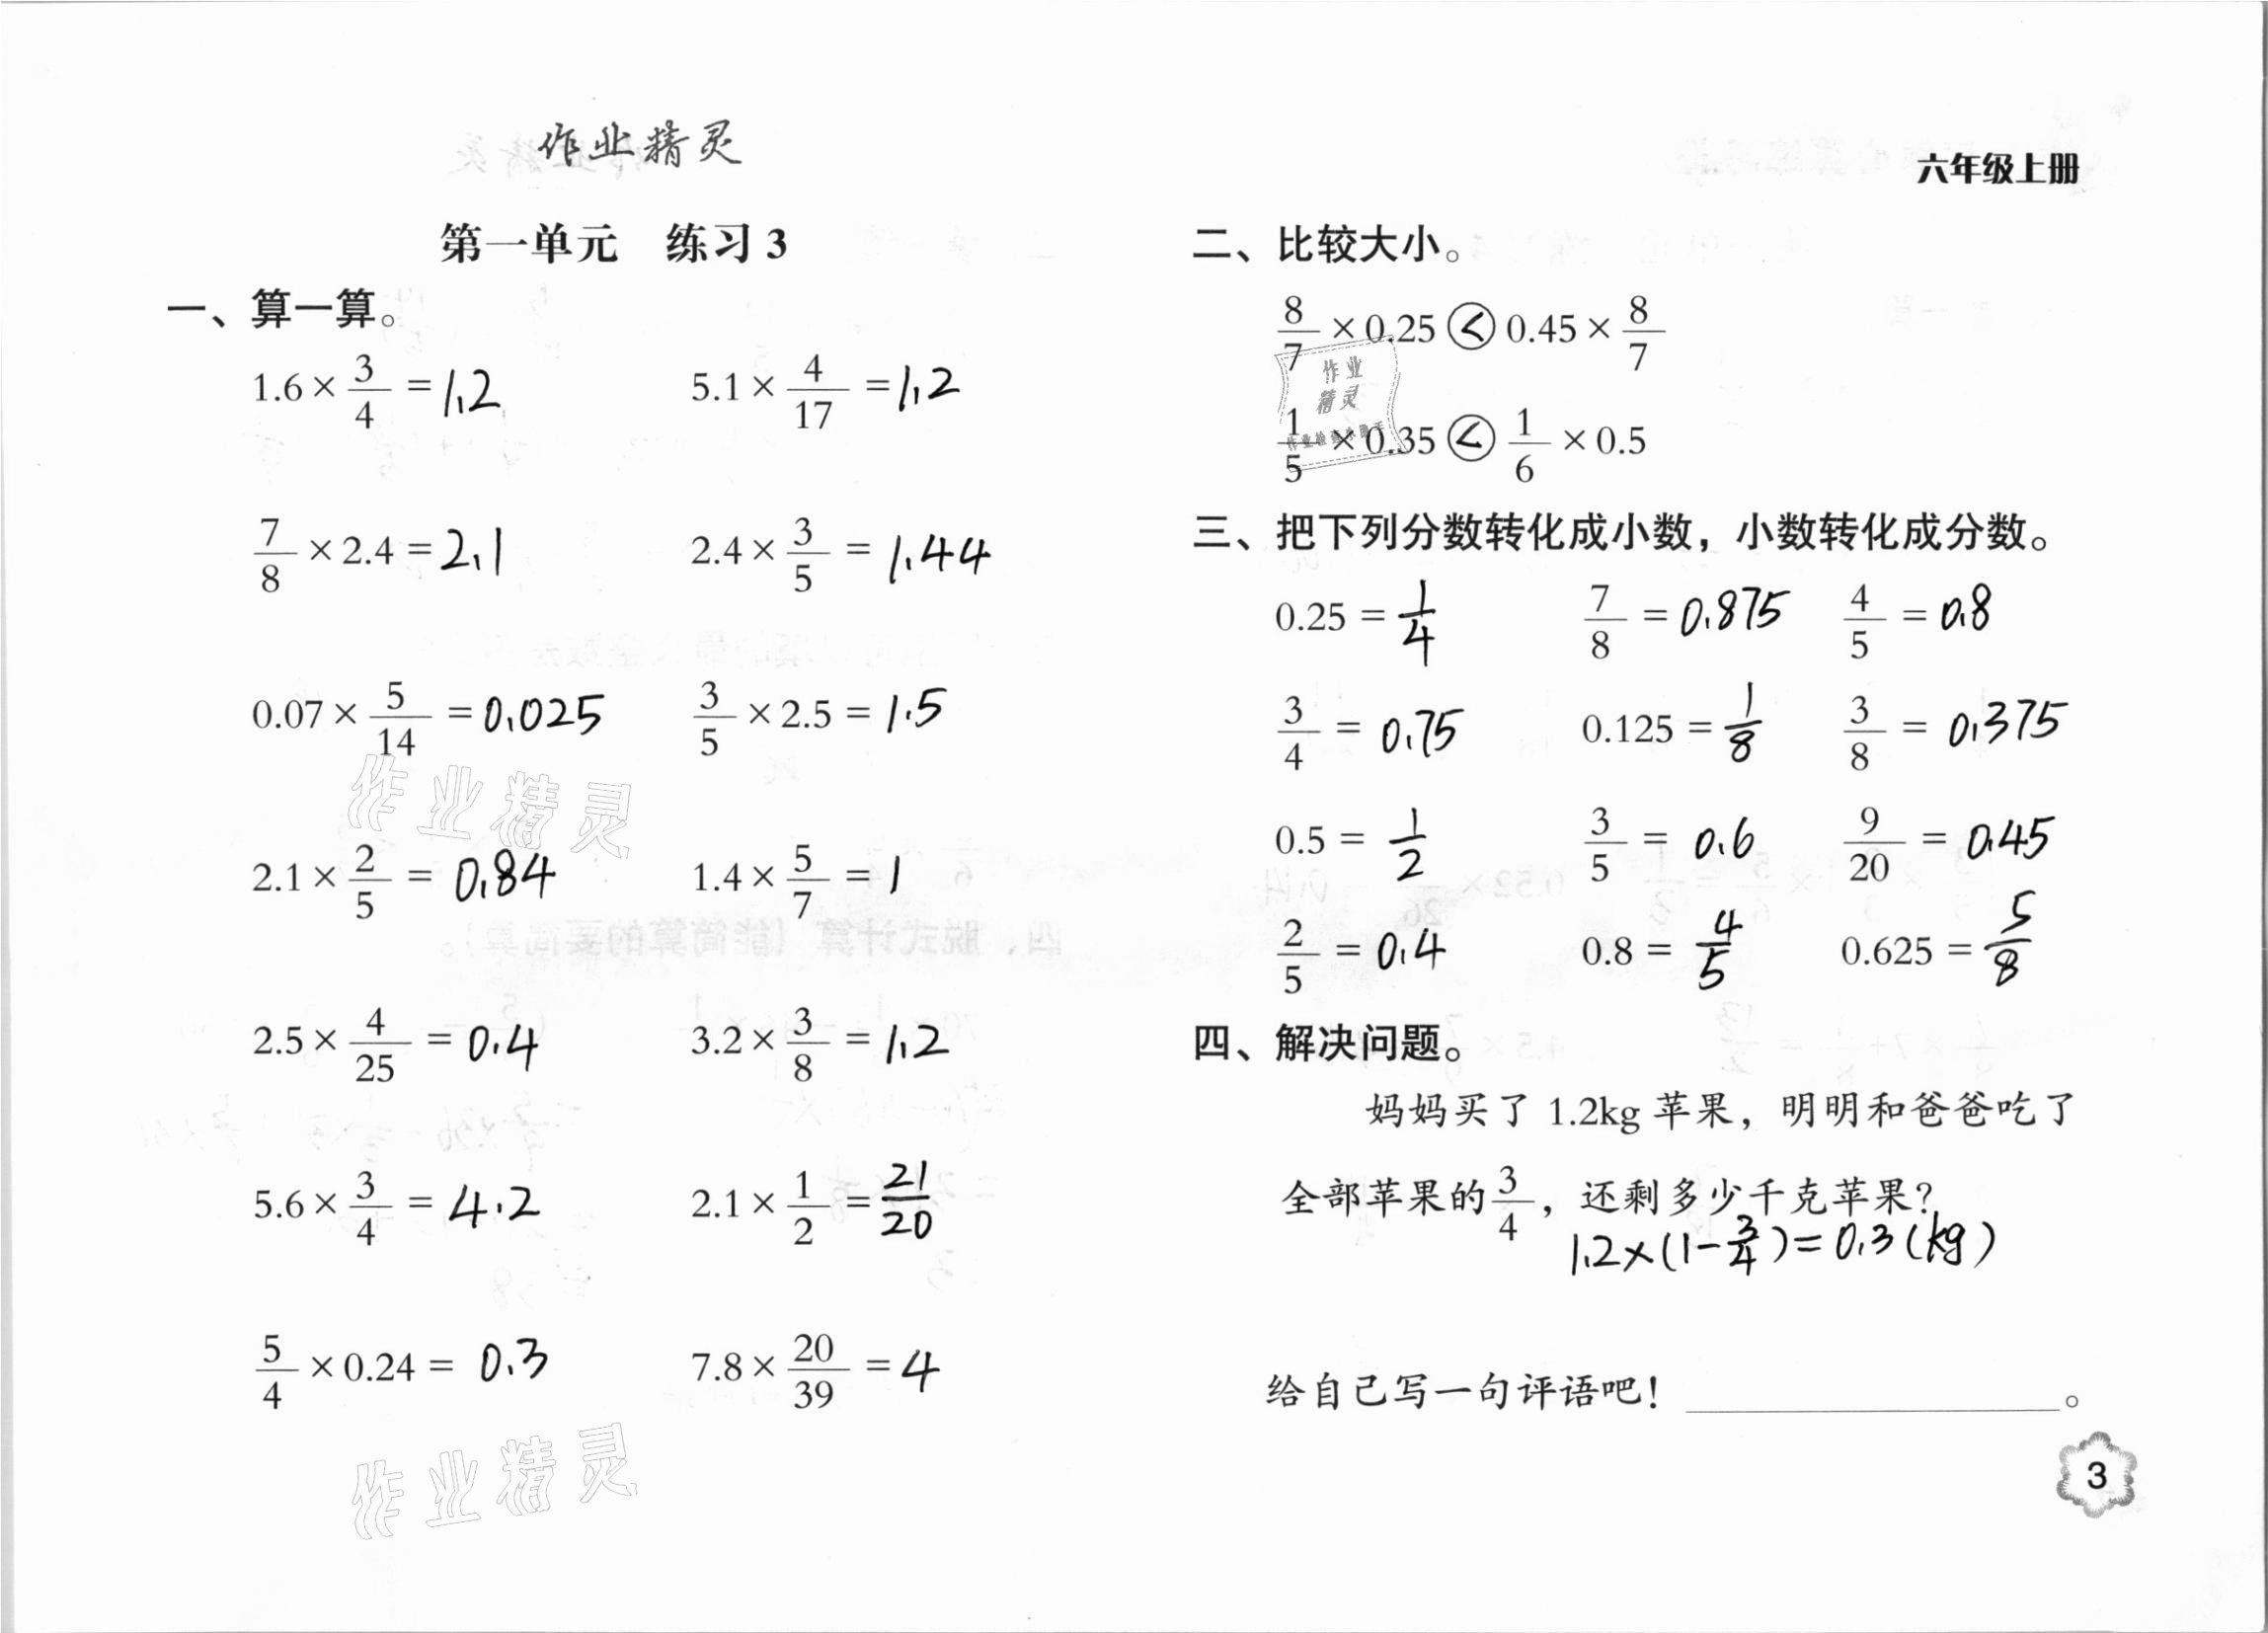 作业精灵
六年级上册
第一单元 练习3
一、算一算。
1.6×3/4=1.2 5.1×4/17=1.2
7/8×2.4=2.1 2.4×3/5=1.44
0.07×5/14=0.025 3/5×2.5=1.5
作业精灵
2.1×2/5=0.84 1.4×5/7=1
2.5×4/25=0.4 3.2×3/8=1.2
5.6×3/4=4.2 2.1×1/2=21/20
5/4×0.24=0.3 7.8×20/39=4
作业精灵
二、比较大小。
8/7×0.25<0.45×8/7
作业
精灵
1/5×0.35<1/6×0.5
三、把下列分数转化成小数，小数转化成分数。
0.25=1/4 7/8=0.875 4/5=0.8
3/4=0.75 0.125=1/8 3/8=0.375
0.5=1/2 3/5=0.6 9/20=0.45
2/5=0.4 0.8=4/5 0.625=5/8
四、解决问题。
妈妈买了1.2kg苹果，明明和爸爸吃了
全部苹果的3/4，还剩多少千克苹果？
1.2×(1-3/4)=0.3(kg)
给自己写一句评语吧！____________。
3